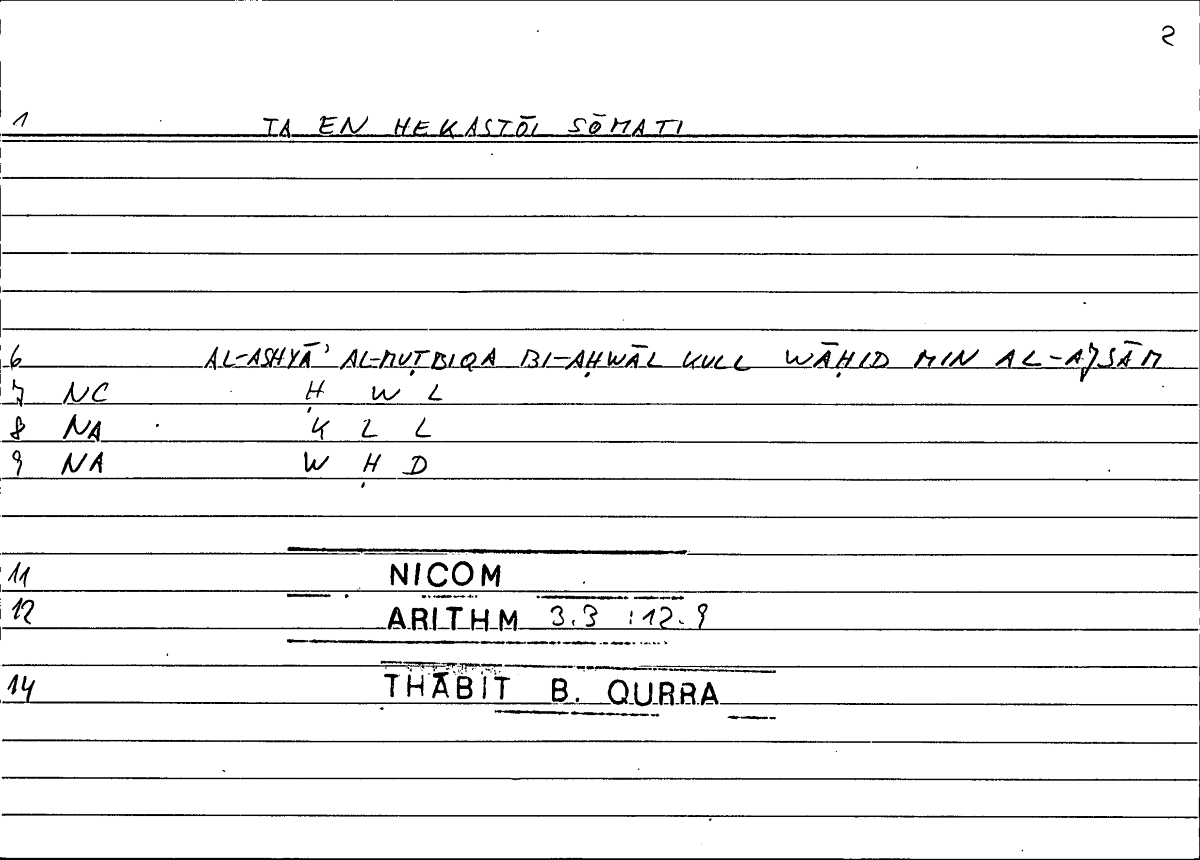 2
1 TA EN HEKASTŌI SŌMATI
6 AL-ASHYĀʾ AL-MUṬBIQA BI-AḤWĀL KULL WĀḤID MIN AL-AJSĀM
7 NC Ḥ W L
8 NA K L L
9 NA W Ḥ D
11 NICOM
12 ARITHM 3.3 :12.9
14 THĀBIT B. QURRA